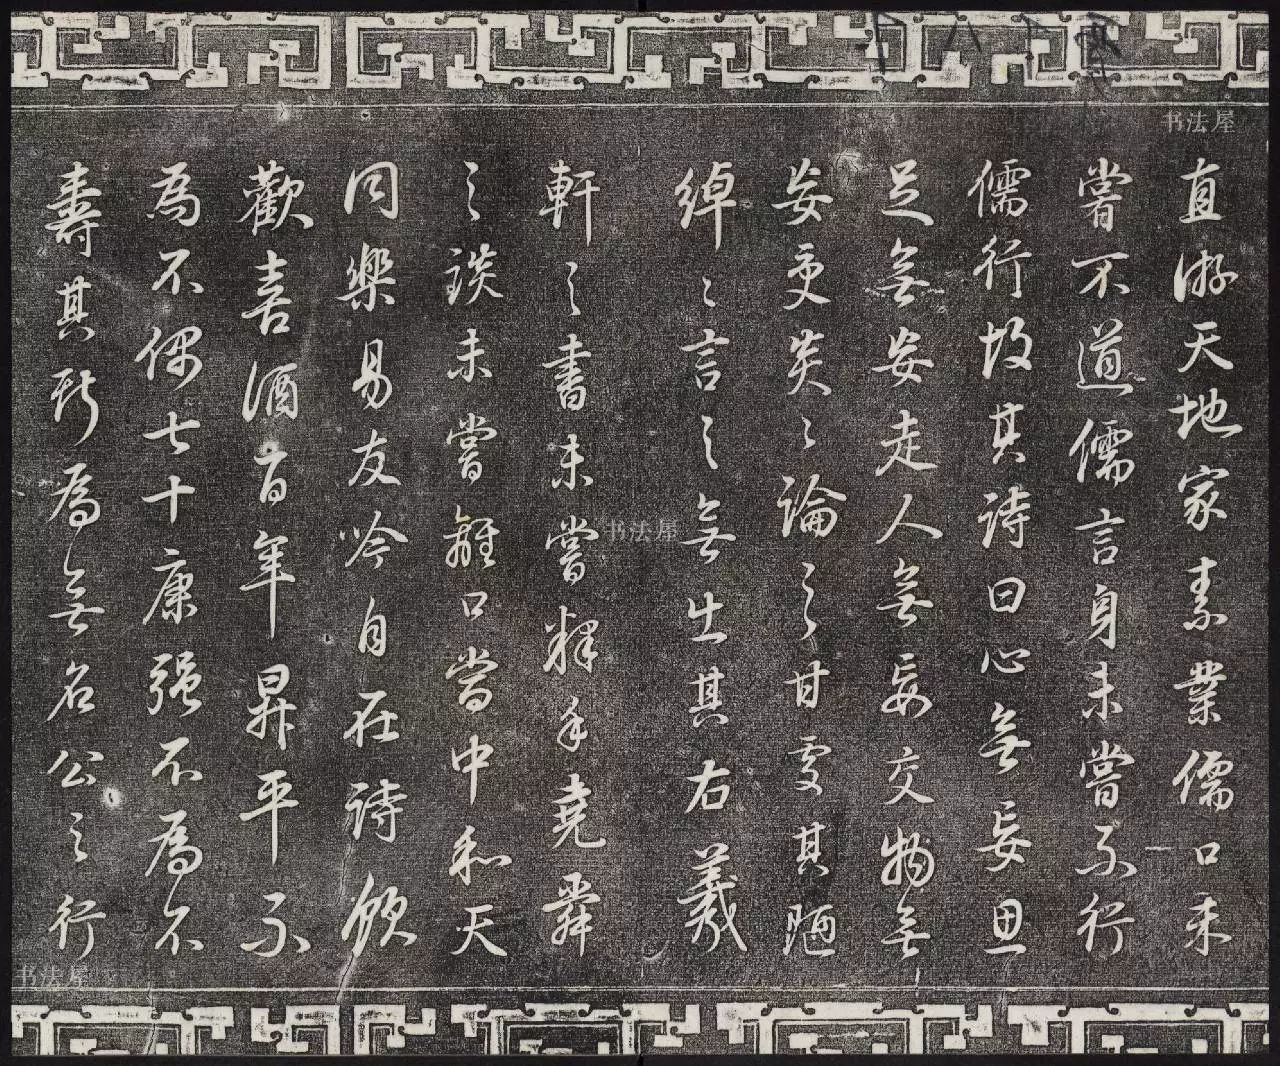 直游天地家素業儒口未
嘗不道儒言身未嘗不行
儒行故其詩曰心無妄思
足無妄走人無妄交物無
妄受炎々論之甘處其陋
綽々言之無出其右羲
軒之書未嘗釋手堯舜
之談未嘗離口當中和天
同樂易友吟自在詩飲
歡喜酒百年昇平不
為不偶七十康強不為不
壽其斯為無名公之行
书法屋
书法屋
书法屋